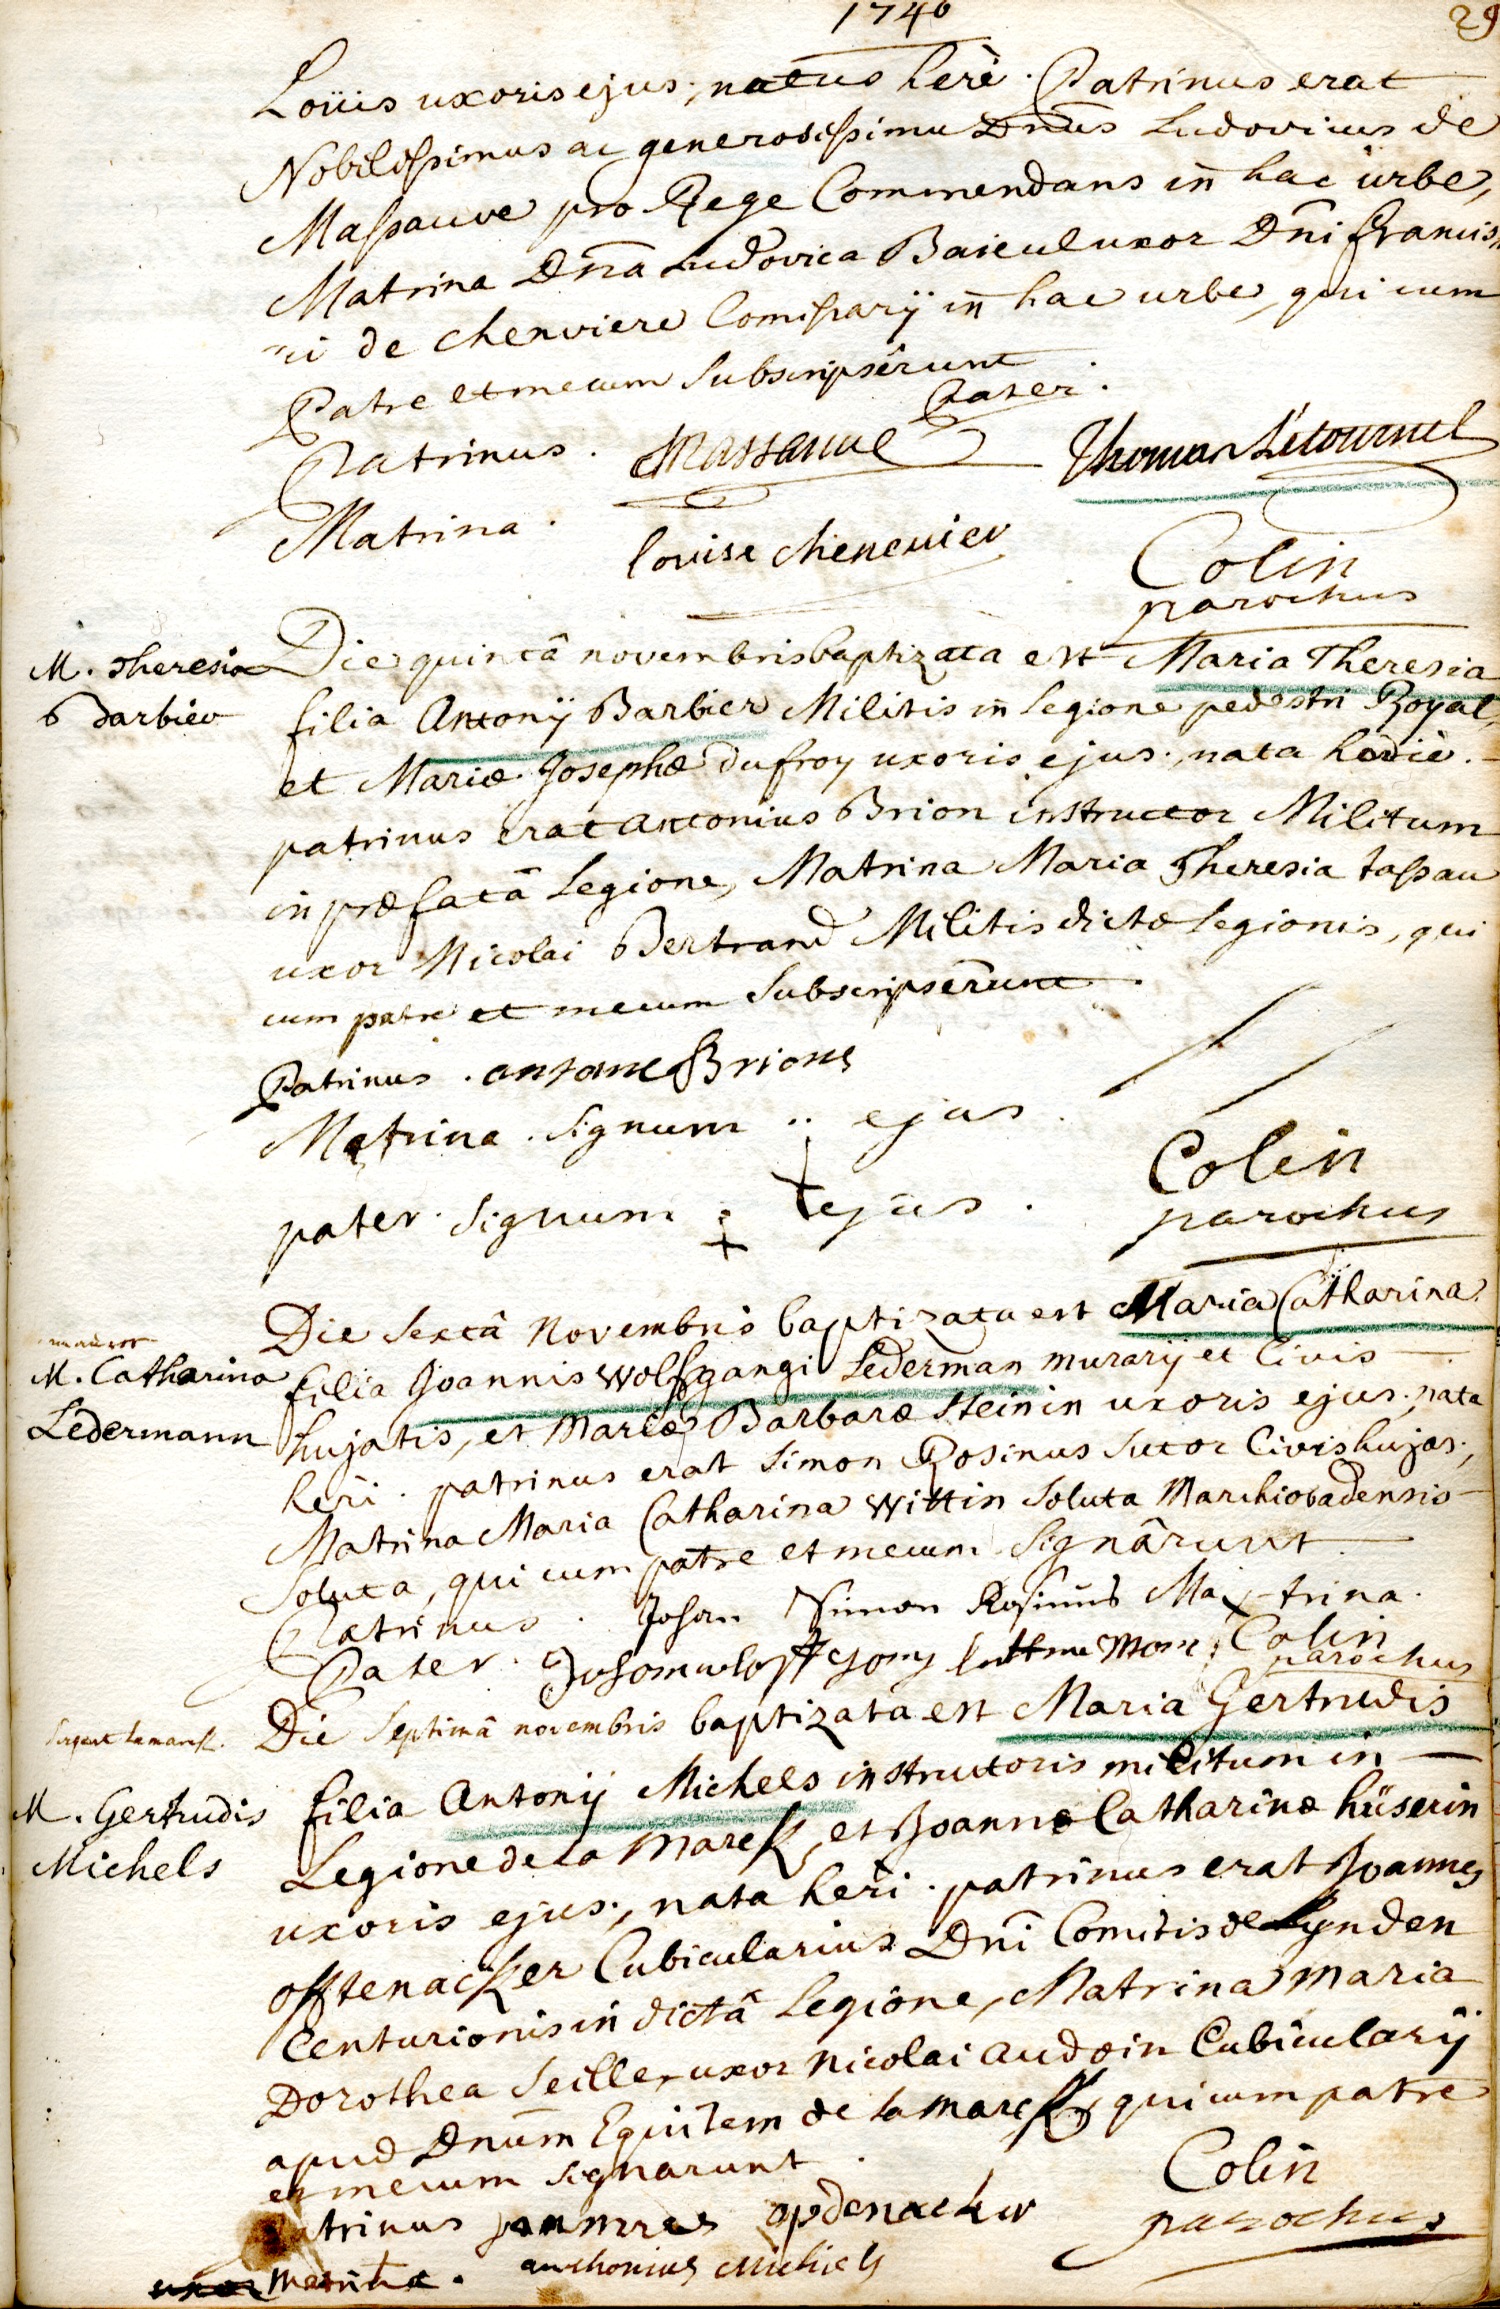 1740
29
Loüis uxoris ejus; natus herè. Patrinus erat
Nobilissimus ac generosissimu Dn̄us Ludovicus de
Massauve pro Rege Commendans in hac urbe,
Matrina Dn̄a Ludovica Baieul uxor Dn̄i Francis,,
ci de chenviere Comissarÿ in hac urbe, qui cum
Patre et mecum Subscripsêrunt
Pater.
Patrinus. Massauve Thomas Létournel
Matrina. louise chenevier
Colin
parochus
M. Theresia
Barbier
Die quintâ novembris baptizata est Maria Theresia
filia Antonÿ Barbier Militis in Legione pedestri Royal,
et Mariæ Josephæ dufroy uxoris ejus; nata hodiè.
patrinus erat antonius Brion instructor Militum
in præfatâ Legione, Matrina Maria Theresia tassau
uxor Nicolai Bertrand Militis dictæ Legionis, qui
cum patre et mecum Subscripsêrunt
Patrinus. antoine Brion
Matrina. Signum ejus.
pater. Signum ejus.
Colin
parochus
M. Catharina
Ledermann
Die Sextâ Novembris baptizata est Maria Catharina
filia Joannis Wolfgangi Lederman murarÿ et Civis
hujatis, et Mariæ Barbaræ Steinin uxoris ejus; nata
heri. patrinus erat Simon Rosinus Sutor Civis hujas;
Matrina Maria Catharina Wittin Soluta Marchiobadensis
Soluta, qui cum patre et mecum Signârunt
Patrinus. Johan Simon Rosinus Ma+trina.
Pater. Colin
parochus
Sergent Lamarck.
M. Gertrudis
Michels
Die Septimâ novembris baptizata est Maria Gertrudis
filia Antonÿ Michels instructoris militum in
Legione de la Marck, et Joannæ Catharinæ hüserin
uxoris ejus; nata heri. patrinus erat Joannes
offtenacker Cubicularius Dn̄i Comitis de Lynden
Centurionis in dictâ Legione, Matrina Maria
Dorothea Seiller uxor Nicolai audoin Cubicularÿ
apud Dn̄um Equitem de la Marck, qui cum patre
et mecum Signarunt.
Patrinus opdenacker
Colin
parochus
uxor Matrina. anthonius Michels